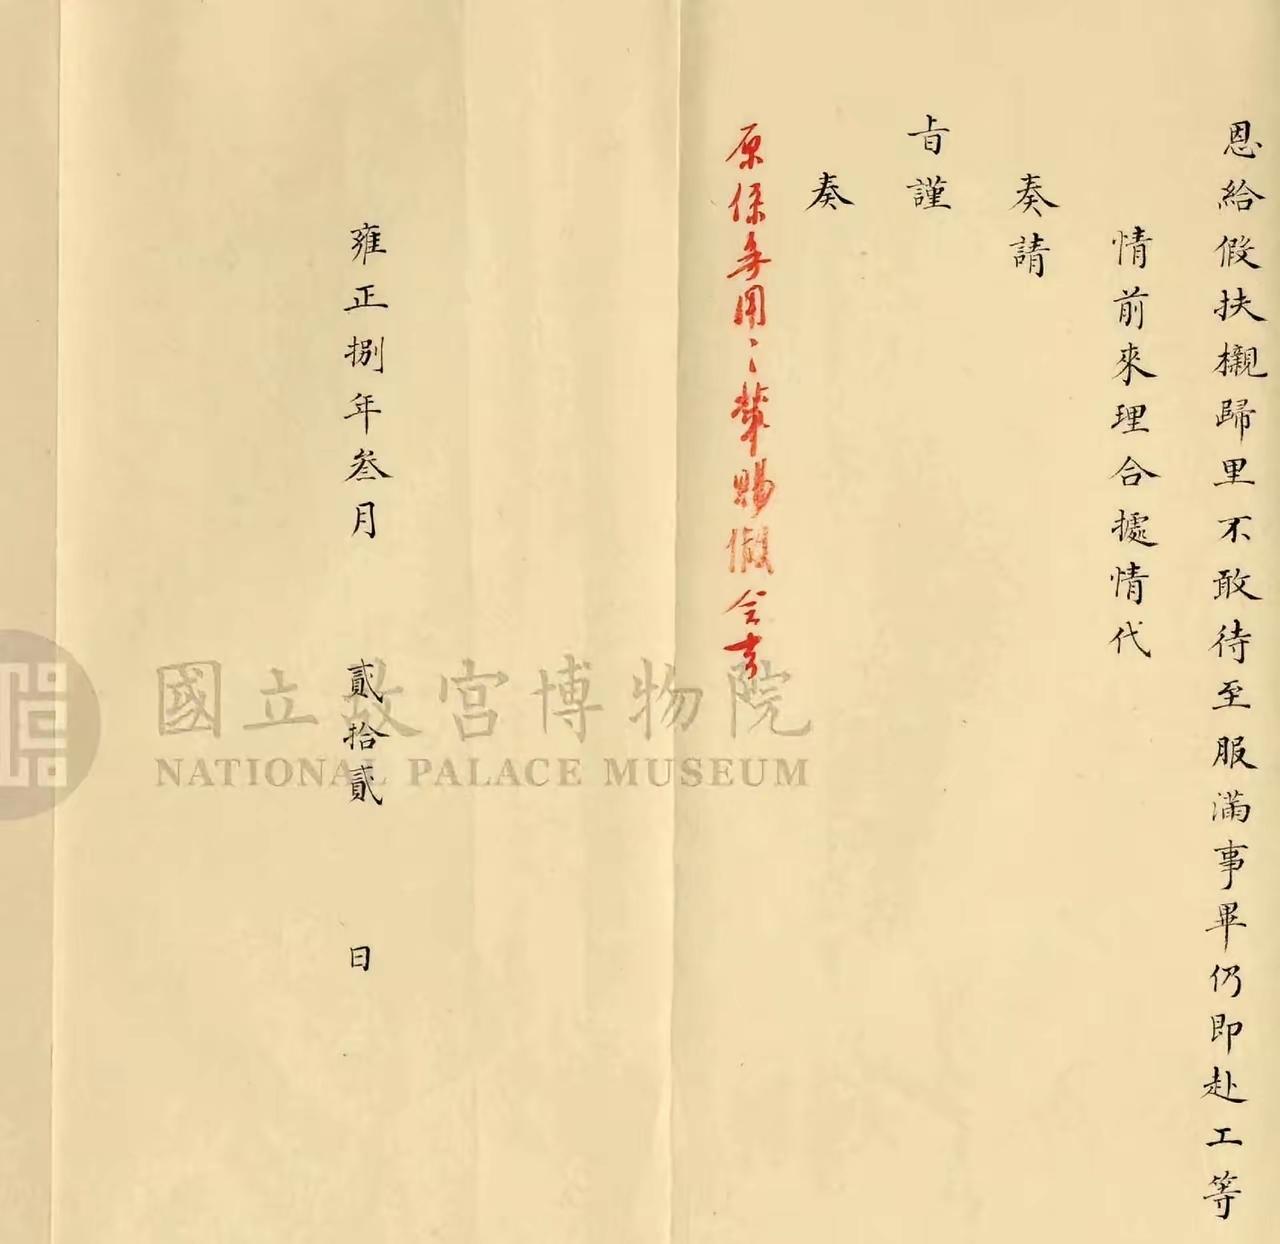 恩給假扶櫬歸里不敢待至服滿事畢仍即赴工等
情前來理合據情代
奏請
旨謹
奏
原係無用之輩賜假令去
雍正捌年叁月 貳拾貳 日
國立故宮博物院
NATIONAL PALACE MUSEUM